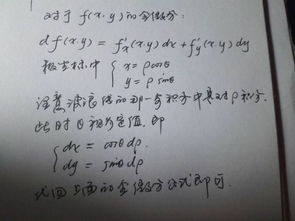 对于 f(x·y) 的全微分:
d f(x·y) = f'x(x·y) dx + f'y(x·y) dy
极坐标中 { x = ρcosθ
y = ρ sinθ
注意 的那一步积分中只对 ρ 积分.
此时 θ 视为定值. 即
{ dx = cosθ dρ.
dy = sinθ dρ
代回上面的全微分公式即可.